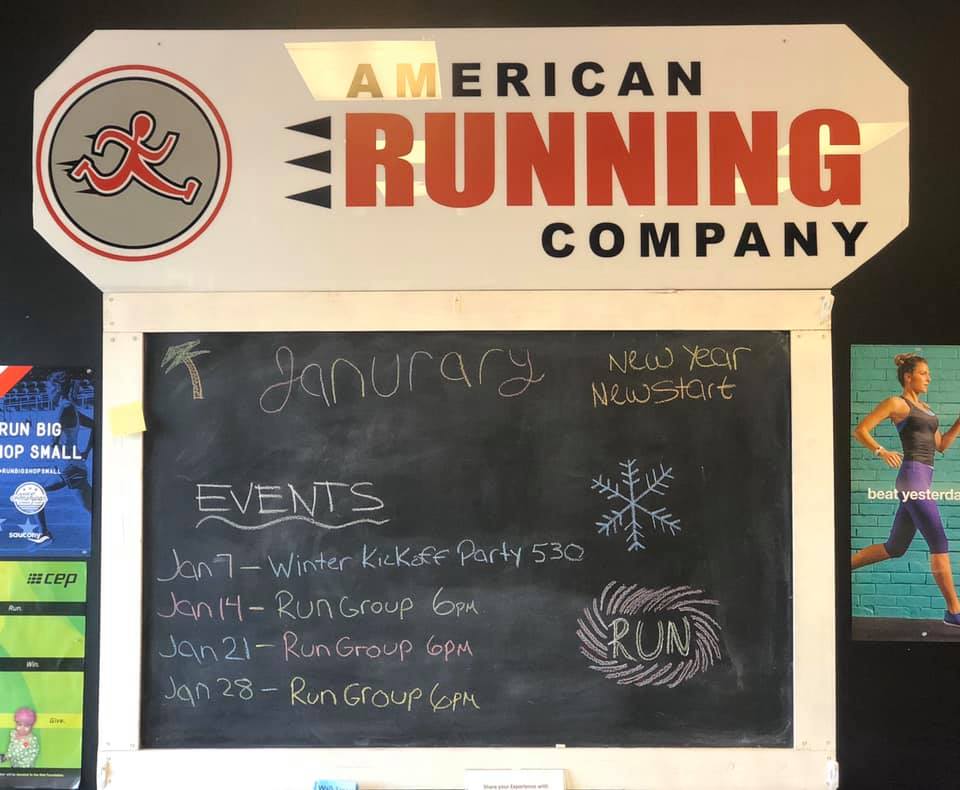 AMERICAN
RUNNING
COMPANY
Janurary
New Year
New Start
EVENTS
Jan 7 - Winter Kickoff Party 530
Jan 14 - Run Group 6PM
Jan 21 - Run Group 6PM
Jan 28 - Run Group 6PM
RUN
RUN BIG
OP SMALL
#RUNBIGSHOPSMALL
saucony
cep
Run.
Win.
Give.
beat yesterda
Share your Experience with